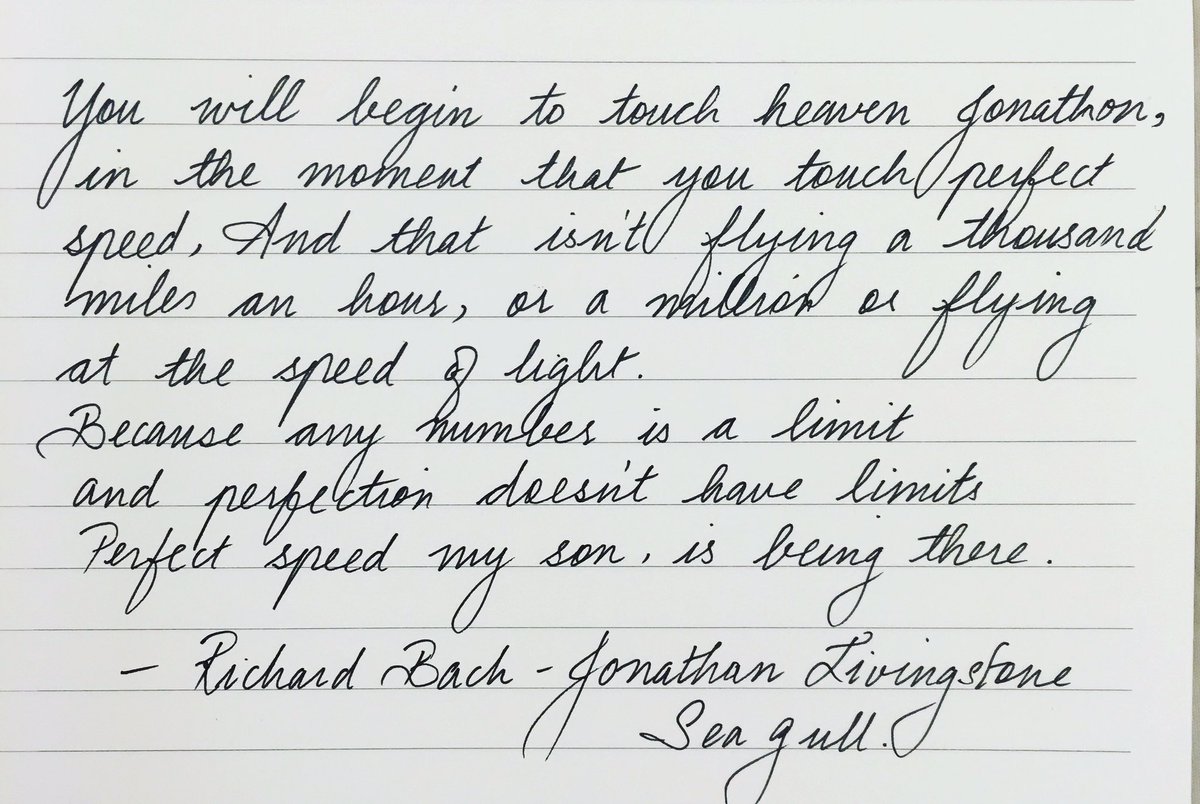 You will begin to touch heaven Jonathon,
in the moment that you touch perfect
speed, And that isn't flying a thousand
miles an hour, or a million or flying
at the speed of light.
Because any number is a limit
and perfection doesn't have limits
Perfect speed my son, is being there.
- Richard Bach - Jonathan Livingstone
Sea gull.